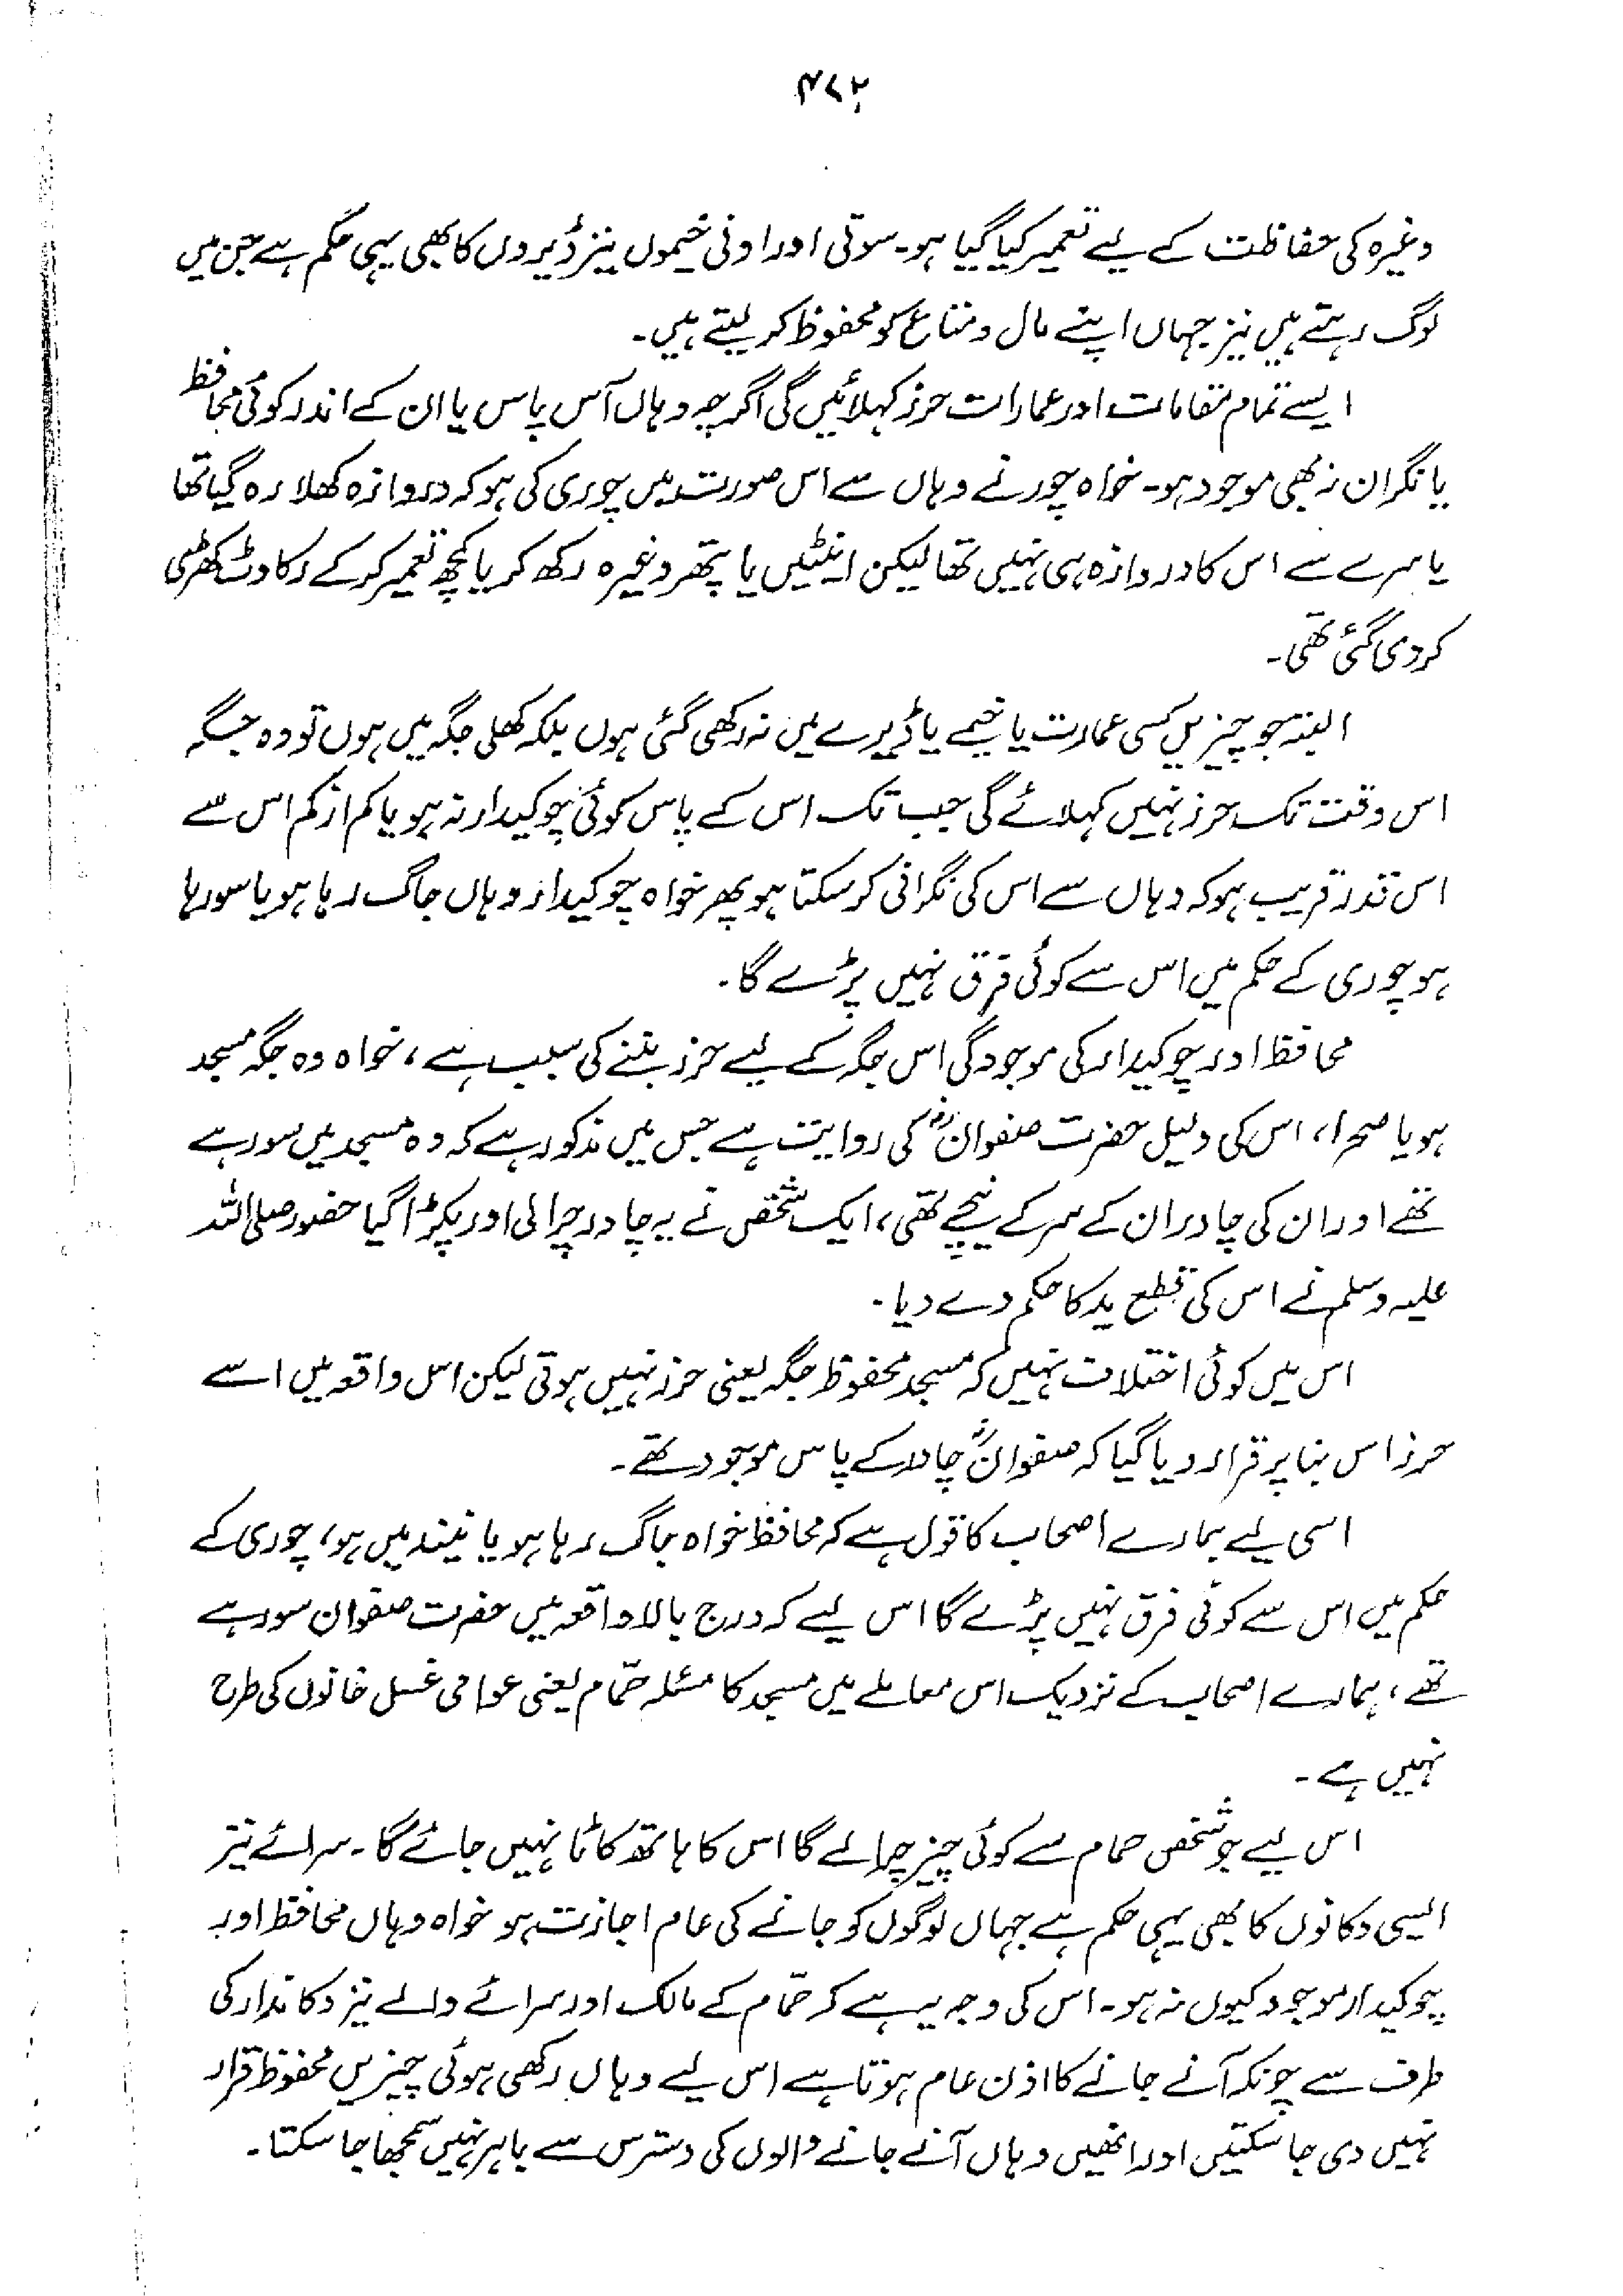 ۴۷۲
وغیرہ کی حفاظت کے لیے تعمیر کیا گیا ہو۔ سوتی اور اونی خیموں نیز ڈیروں کا بھی یہی حکم ہے جن میں
لوگ رہتے ہیں نیز جہاں اپنے مال و متاع کو محفوظ کر لیتے ہیں۔
ایسے تمام مقامات اور عمارات حرز کہلائیں گی اگرچہ وہاں آس پاس یا ان کے اندر کوئی محافظ
یا نگران نہ بھی موجود ہو۔ خواہ چور نے وہاں سے اس صورت میں چوری کی ہو کہ دروازہ کھلا رہ گیا تھا
یا سرے سے اس کا دروازہ ہی نہیں تھا لیکن اینٹیں یا پتھر وغیرہ رکھ کر یا کچھ تعمیر کر کے رکاوٹ کھڑی
کر دی گئی تھی۔
البتہ جو چیزیں کسی عمارت یا خیمے یا ڈیرے میں نہ رکھی گئی ہوں بلکہ کھلی جگہ میں ہوں تو وہ جگہ
اس وقت تک حرز نہیں کہلائے گی جب تک اس کے پاس کوئی چوکیدار نہ ہو یا کم از کم اس سے
اس قدر قریب ہو کہ وہاں سے اس کی نگرانی کر سکتا ہو پھر خواہ چوکیدار وہاں جاگ رہا ہو یا سو رہا
ہو چوری کے حکم میں اس سے کوئی فرق نہیں پڑے گا۔
محافظ اور چوکیدار کی موجودگی اس جگہ کے لیے حرز بننے کی سبب ہے، خواہ وہ جگہ مسجد
ہو یا صحرا، اس کی دلیل حضرت صفوانؓ کی روایت ہے جس میں مذکور ہے کہ وہ مسجد میں سو رہے
تھے اور ان کی چادر ان کے سر کے نیچے تھی، ایک شخص نے یہ چادر چرا لی اور پکڑا گیا حضور صلی اللہ
علیہ وسلم نے اس کی قطع ید کا حکم دے دیا۔
اس میں کوئی اختلاف نہیں کہ مسجد محفوظ جگہ یعنی حرز نہیں ہوتی لیکن اس واقعہ میں اسے
حرز اس بنا پر قرار دیا گیا کہ صفوانؓ چادر کے پاس موجود تھے۔
اسی لیے ہمارے اصحاب کا قول ہے کہ محافظ خواہ جاگ رہا ہو یا نیند میں ہو، چوری کے
حکم میں اس سے کوئی فرق نہیں پڑے گا اس لیے کہ درج بالا واقعہ میں حضرت صفوان سو رہے
تھے، ہمارے اصحاب کے نزدیک اس معاملے میں مسجد کا مسئلہ حمّام یعنی عوامی غسل خانوں کی طرح
نہیں ہے۔
اس لیے جو شخص حمام سے کوئی چیز چرا لے گا اس کا ہاتھ کاٹا نہیں جائے گا۔ سرائے نیز
ایسی دکانوں کا بھی یہی حکم ہے جہاں لوگوں کو جانے کی عام اجازت ہو خواہ وہاں محافظ اور
چوکیدار موجود کیوں نہ ہو۔ اس کی وجہ یہ ہے کہ حمّام کے مالک اور سرائے والے نیز دکاندار کی
طرف سے چونکہ آنے جانے کا اذن عام ہوتا ہے اس لیے وہاں رکھی ہوئی چیزیں محفوظ قرار
نہیں دی جا سکتیں اور انھیں وہاں آنے جانے والوں کی دسترس سے باہر نہیں سمجھا جا سکتا۔